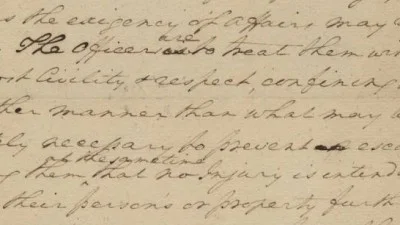 s the exigency of affairs may
The Officers are to treat them wi
ost Civility & respect, confining
ther manner than what may
ly necessary to prevent esca
at the same time
ng them, that no Injury is intend
their persons or property furth